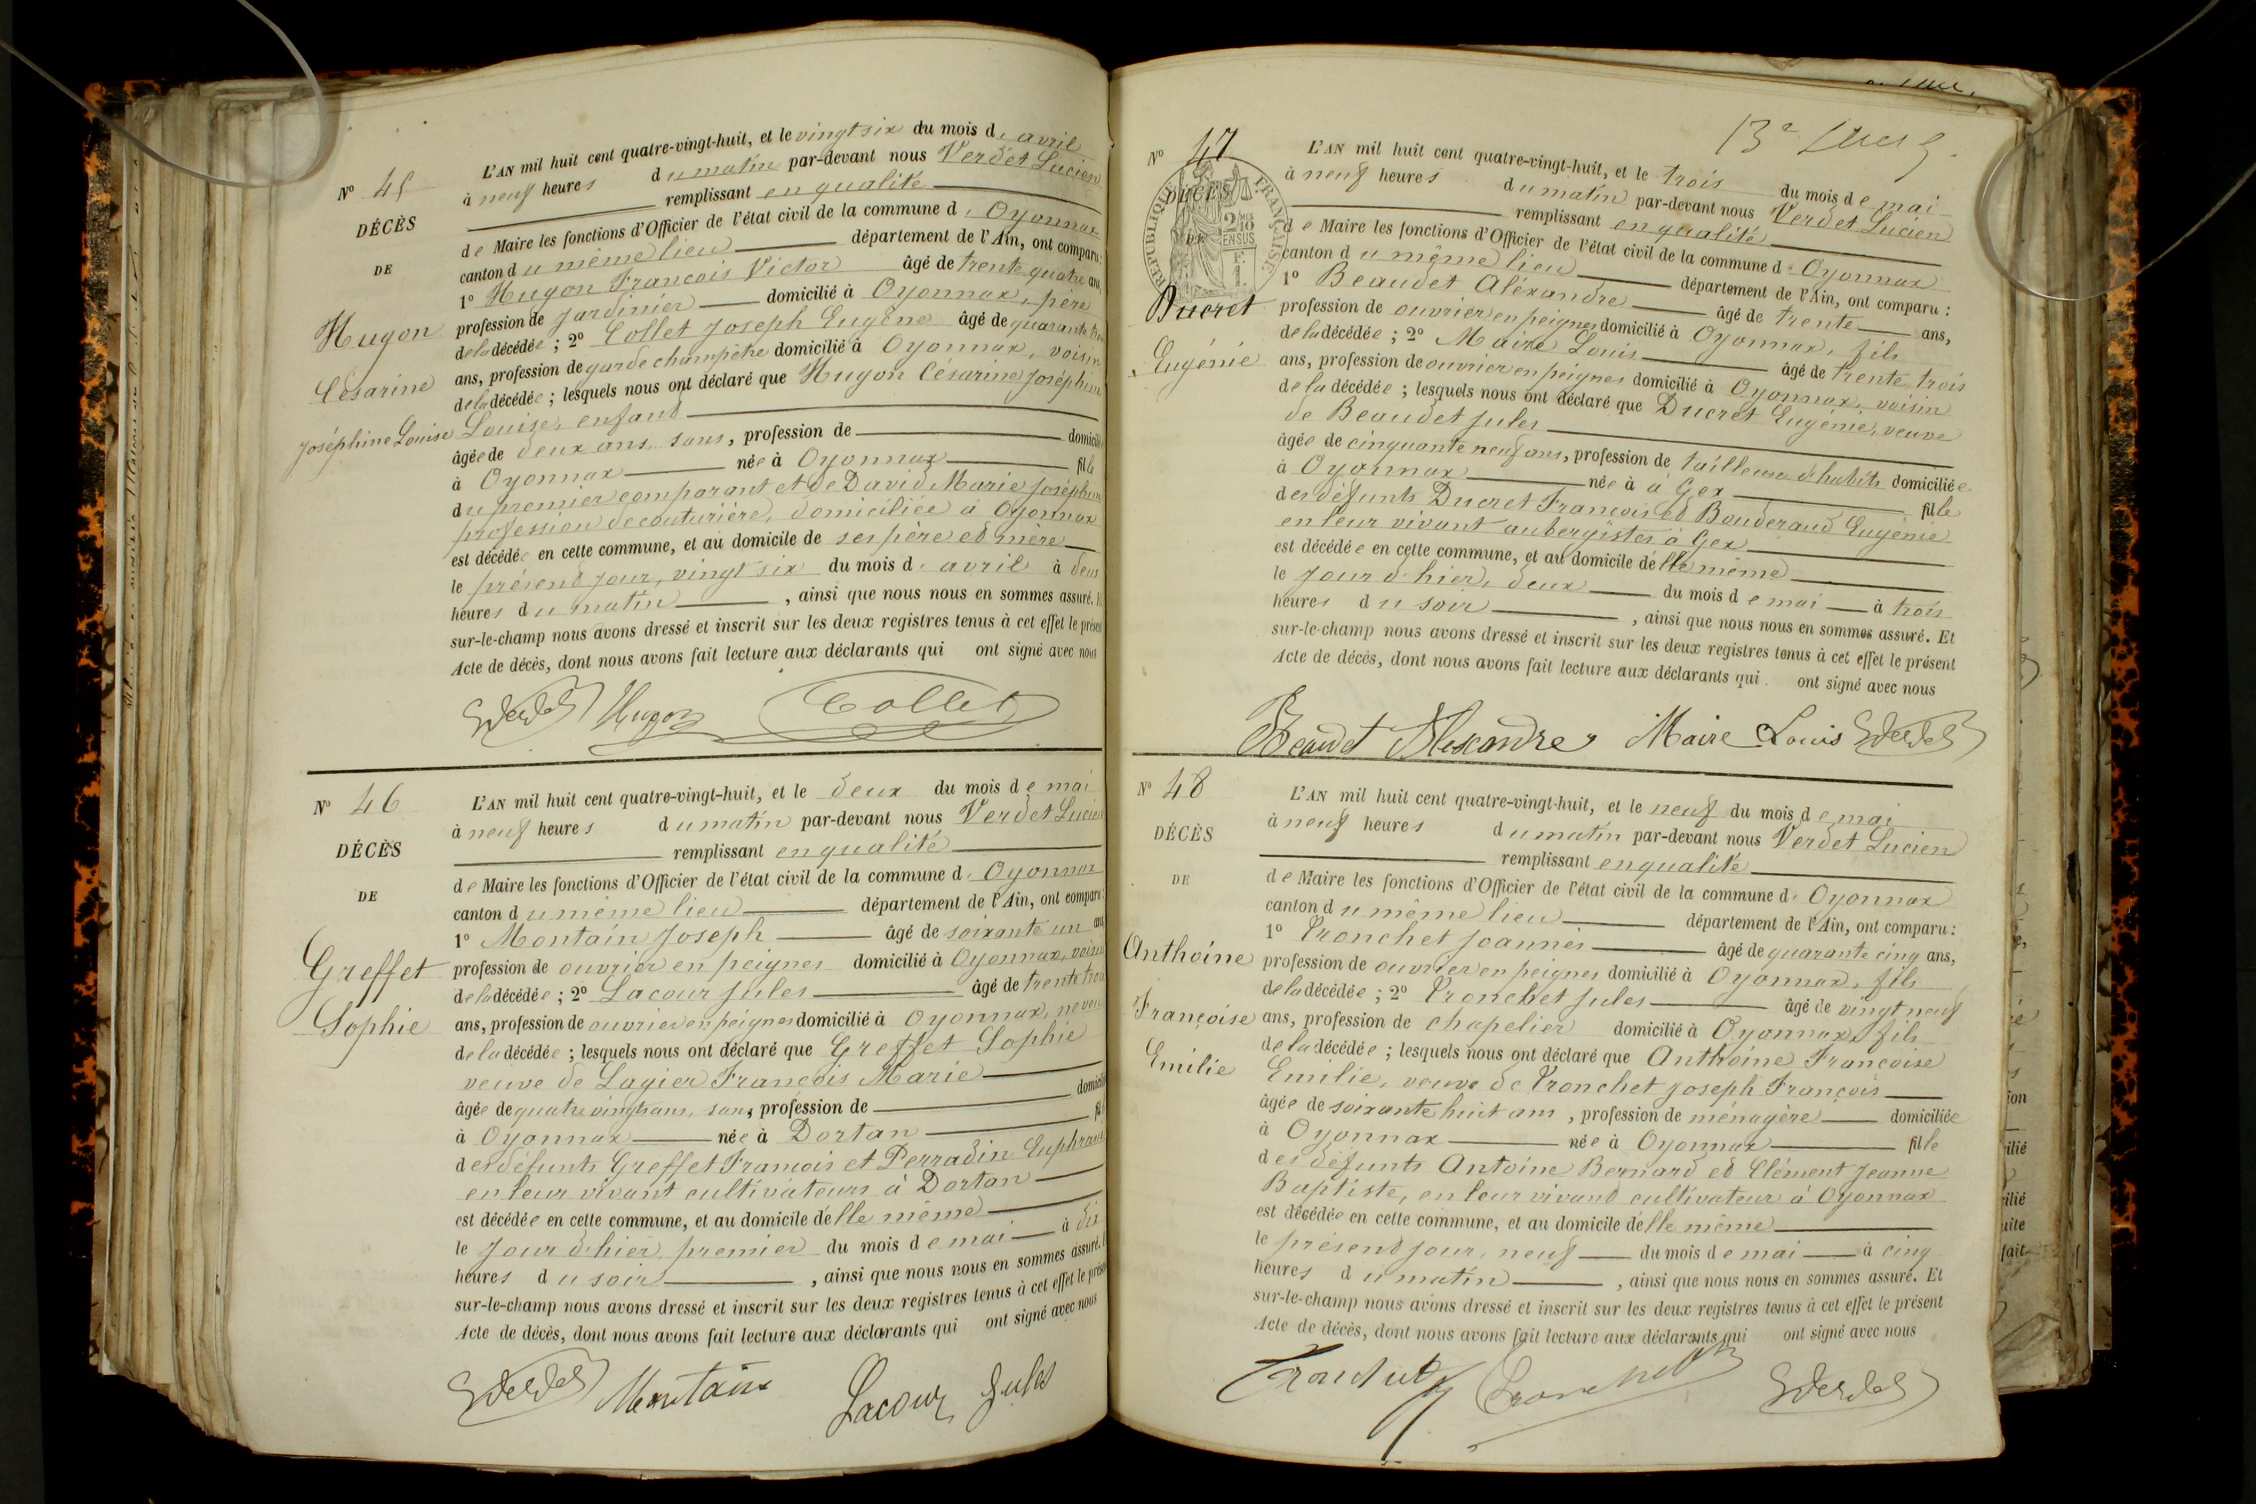 N° 45
DÉCÈS
DE
Hugon
Césarine
Joséphine Louise
L'AN mil huit cent quatre-vingt-huit, et le vingt six du mois d'avril
à neuf heures du matin par-devant nous Verdet Lucien
remplissant en qualité
de Maire les fonctions d'Officier de l'état civil de la commune d'Oyonnax
canton du même lieu département de l'Ain, ont comparu:
1° Hugon François Victor âgé de trente quatre ans,
profession de jardinier domicilié à Oyonnax, père
de la décédée ; 2° Collet Joseph Eugène âgé de quarante trois
ans, profession de garde champêtre domicilié à Oyonnax, voisin
de la décédée ; lesquels nous ont déclaré que Hugon Césarine Joséphine
Louise, enfant
âgée de deux ans, sans, profession de domicilié
à Oyonnax née à Oyonnax fille
du premier comparant et de David Marie Joséphine
profession de couturière, domiciliée à Oyonnax
est décédée en cette commune, et au domicile de ses père et mère
le présent jour, vingt six du mois d'avril à deux
heures du matin , ainsi que nous nous en sommes assuré. Et
sur-le-champ nous avons dressé et inscrit sur les deux registres tenus à cet effet le présent
Acte de décès, dont nous avons fait lecture aux déclarants qui ont signé avec nous
LVerdet Hugon Collet
N° 46
DÉCÈS
DE
Greffet
Sophie
L'AN mil huit cent quatre-vingt-huit, et le deux du mois de mai
à neuf heures du matin par-devant nous Verdet Lucien
remplissant en qualité
de Maire les fonctions d'Officier de l'état civil de la commune d'Oyonnax
canton du même lieu département de l'Ain, ont comparu:
1° Montain Joseph âgé de soixante un ans
profession de ouvrier en peignes domicilié à Oyonnax, voisin
de la décédée ; 2° Lacour Jules âgé de trente trois
ans, profession de ouvrier en peignes domicilié à Oyonnax, neveu
de la décédée ; lesquels nous ont déclaré que Greffet Sophie
veuve de Lagier François Marie
âgée de quatre vingts ans, sans, profession de domicilié
à Oyonnax née à Dortan fille
des défunts Greffet François et Perradin Euphrasie
en leur vivant cultivateurs à Dortan
est décédée en cette commune, et au domicile d'elle même
le jour d'hier premier du mois de mai à dix
heures du soir , ainsi que nous nous en sommes assuré. Et
sur-le-champ nous avons dressé et inscrit sur les deux registres tenus à cet effet le présent
Acte de décès, dont nous avons fait lecture aux déclarants qui ont signé avec nous
LVerdet Montain Lacour Jules
N° 47
DÉCÈS
DE
RÉPUBLIQUE FRANÇAISE
Ducret
Eugénie
L'AN mil huit cent quatre-vingt-huit, et le trois du mois de mai
à neuf heures du matin par-devant nous Verdet Lucien
remplissant en qualité
de Maire les fonctions d'Officier de l'état civil de la commune d'Oyonnax
canton du même lieu département de l'Ain, ont comparu :
1° Beaudet Aléxandre âgé de trente ans,
profession de ouvrier en peignes domicilié à Oyonnax, fils
de la décédée ; 2° Maire Louis âgé de trente trois
ans, profession de ouvrier en peignes domicilié à Oyonnax, voisin
de la décédée ; lesquels nous ont déclaré que Ducret Eugénie, veuve
de Beaudet Jules
âgée de cinquante neuf ans, profession de tailleuse d'habits domiciliée
à Oyonnax née à à Gex fille
des défunts Ducret François et Bouderaud Eugénie
en leur vivant aubergistes à Gex
est décédée en cette commune, et au domicile d'elle même
le jour d'hier, deux du mois de mai à trois
heures du soir , ainsi que nous nous en sommes assuré. Et
sur-le-champ nous avons dressé et inscrit sur les deux registres tenus à cet effet le présent
Acte de décès, dont nous avons fait lecture aux déclarants qui ont signé avec nous
Beaudet Alexandre Maire Louis LVerdet
N° 48
DÉCÈS
DE
Anthoine
Françoise
Emilie
L'AN mil huit cent quatre-vingt-huit, et le neuf du mois de mai
à neuf heures du matin par-devant nous Verdet Lucien
remplissant en qualité
de Maire les fonctions d'Officier de l'état civil de la commune d'Oyonnax
canton du même lieu département de l'Ain, ont comparu :
1° Tronchet Joannès âgé de quarante cinq ans,
profession de ouvrier en peignes domicilié à Oyonnax, fils
de la décédée ; 2° Tronchet Jules âgé de vingt neuf
ans, profession de chapelier domicilié à Oyonnax, fils
de la décédée ; lesquels nous ont déclaré que Anthoine Françoise
Emilie, veuve de Tronchet Joseph François
âgée de soixante huit ans , profession de ménagère domiciliée
à Oyonnax née à Oyonnax fille
des défunts Antoine Bernard et Clément Jeanne
Baptiste, en leur vivant cultivateurs à Oyonnax
est décédée en cette commune, et au domicile d'elle même
le présent jour, neuf du mois de mai à cinq
heures du matin , ainsi que nous nous en sommes assuré. Et
sur-le-champ nous avons dressé et inscrit sur les deux registres tenus à cet effet le présent
Acte de décès, dont nous avons fait lecture aux déclarants qui ont signé avec nous
Tronchet Tronchet LVerdet